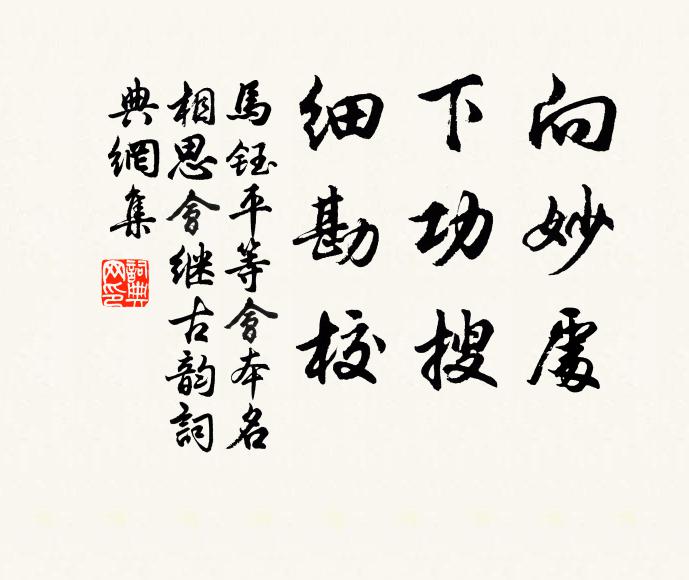 向妙處
下功搜
細勘校
馬鈺平等會本名
相思會继古韵詞
典網集
詞典
网印